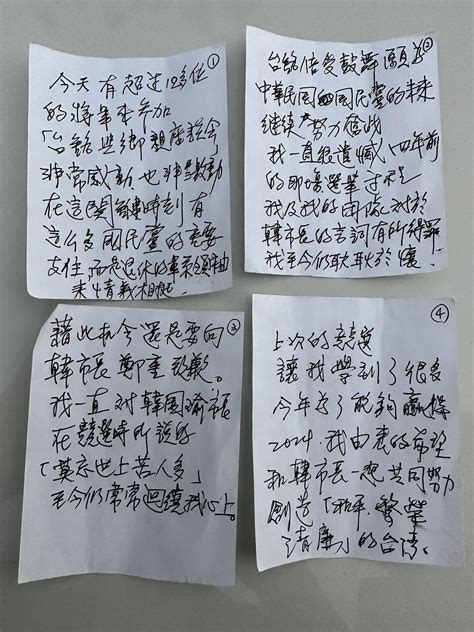 ①
今天有超过10多位
的將軍來參加
「台銘與鄉親座談会」
非常感動也非常激動
在這関鍵時刻有
這么多國民黨的重要
支柱,退休的軍系領袖
来情義相挺
②
台銘倍受鼓舞願為
中華民國國民黨的未來
继续努力奮战
我一直很遺憾,四年前
的那場選舉过程
我及我的團隊对於
韓市長的言詞有所得罪
我至今仍耿耿於懷!
③
藉此机会還是要向
韓市長鄭重致歉。
我一直对韓國瑜市長
在競選時所說的
「莫忘世上苦人多」
至今仍常常迴繞我心上。
④
上次的競選
讓我學到了很多
今年為了能夠贏得
2024.我由衷的希望
和韓市長一起共同努力
創造「和平.繁榮
.清廉」的台湾。